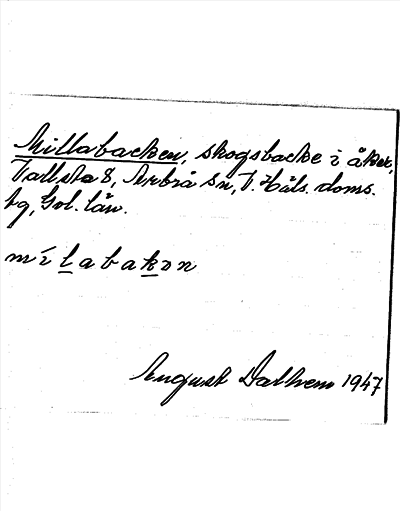 Millabacken, skogsbacke i åker,
Vallsta 8, Arbrå sn, V. Häls. doms.
tg, Gvl. län.
mílabakɔn
August Dalhem 1947